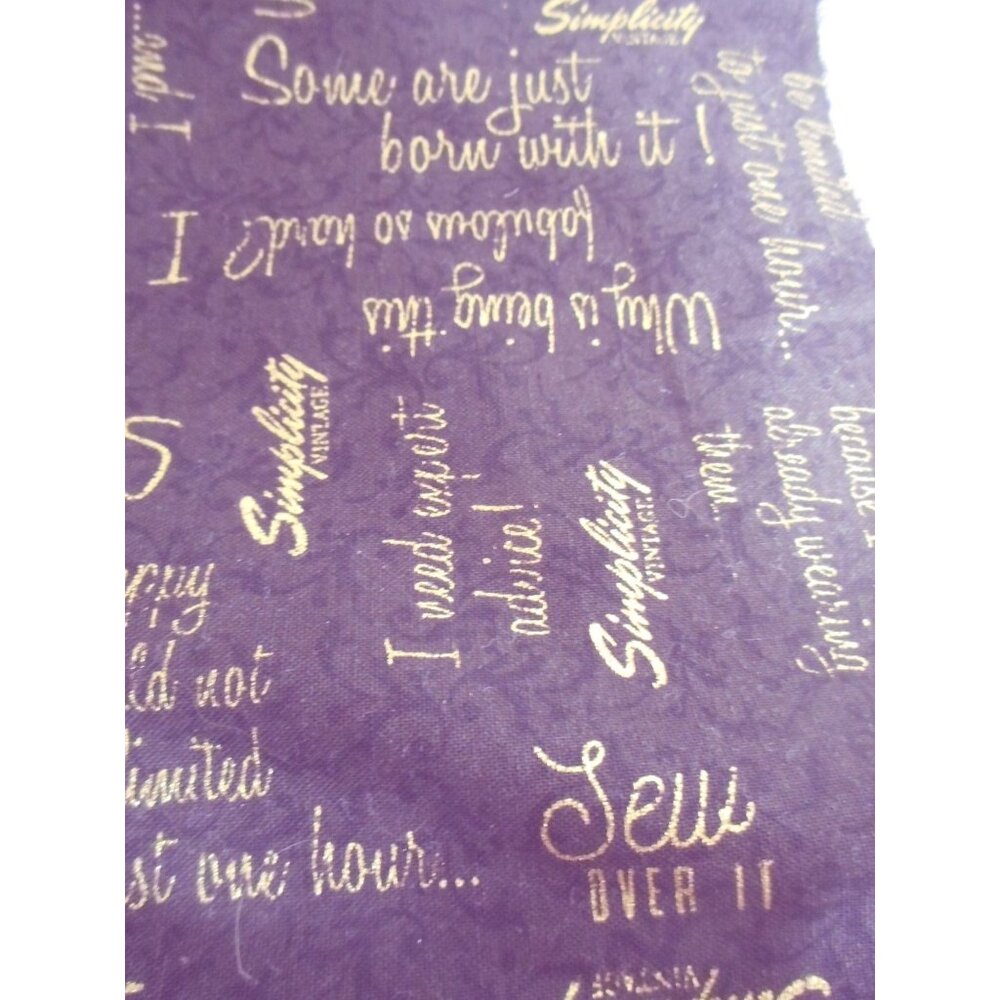 Simplicity
VINTAGE
...and
I
Some are just
born with it!
be limited
to just one hour...
Why is being this
fabulous so hard?
I
Simplicity
VINTAGE
I need expert
advice!
Simplicity
VINTAGE
because I
already wearing
them...
not
limited
one hour...
Sew
OVER IT
VINTAGE